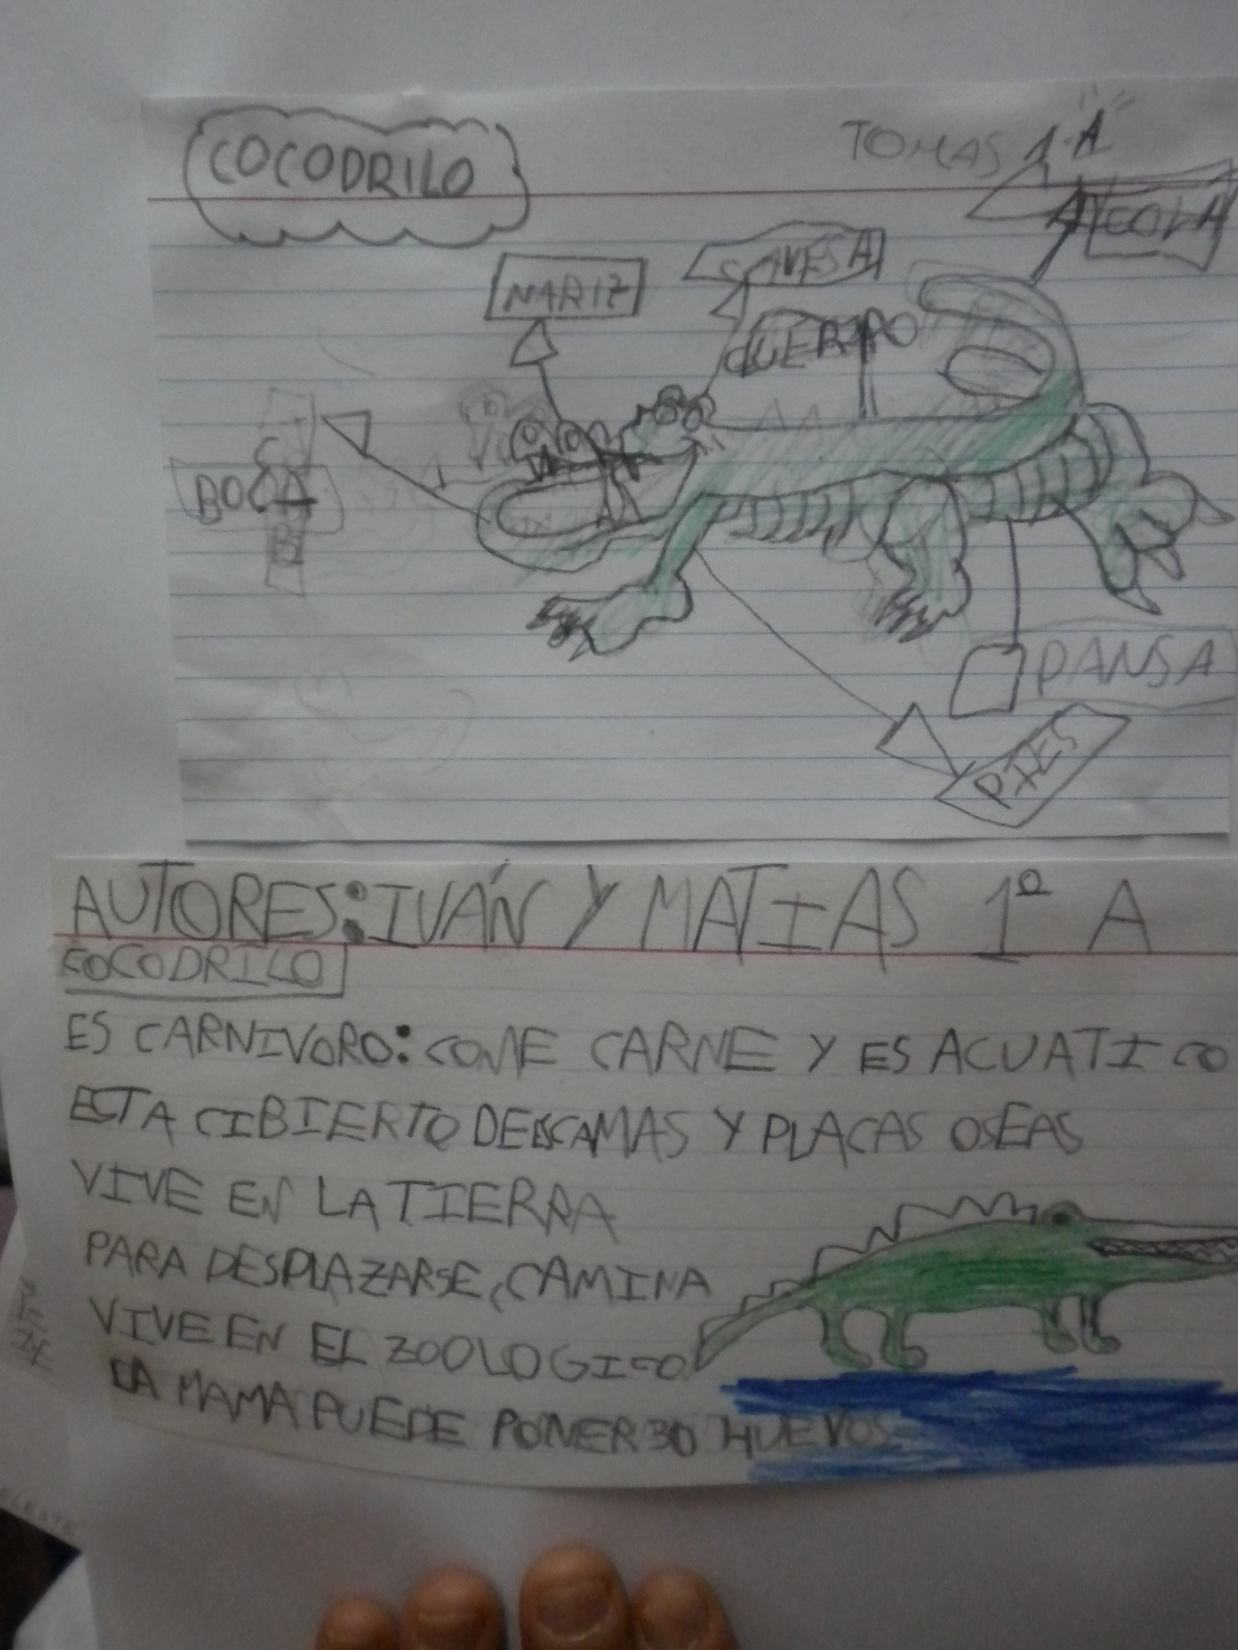 COCODRILO
TOMAS 1·A
COLA
CAVESA
NARIZ
CUERPO
BOCA
PANSA
PIES
AUTORES: IVÁN Y MATIAS 1º A
COCODRILO
ES CARNIVORO: COME CARNE Y ES ACUATICO
ESTA CIBIERTO DE ESCAMAS Y PLACAS OSEAS
VIVE EN LA TIERRA
PARA DESPLAZARSE, CAMINA
VIVE EN EL ZOOLOGICO
LA MAMA PUEDE PONER 30 HUEVOS